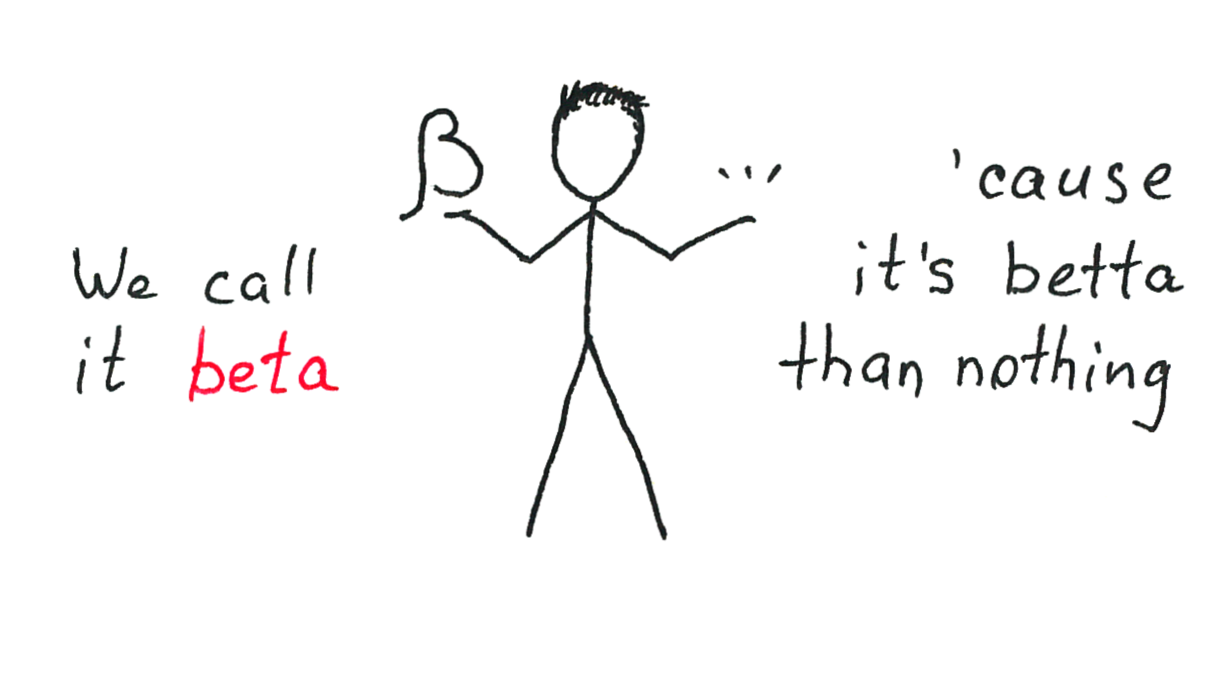 We call
it beta
β
'cause
it's betta
than nothing